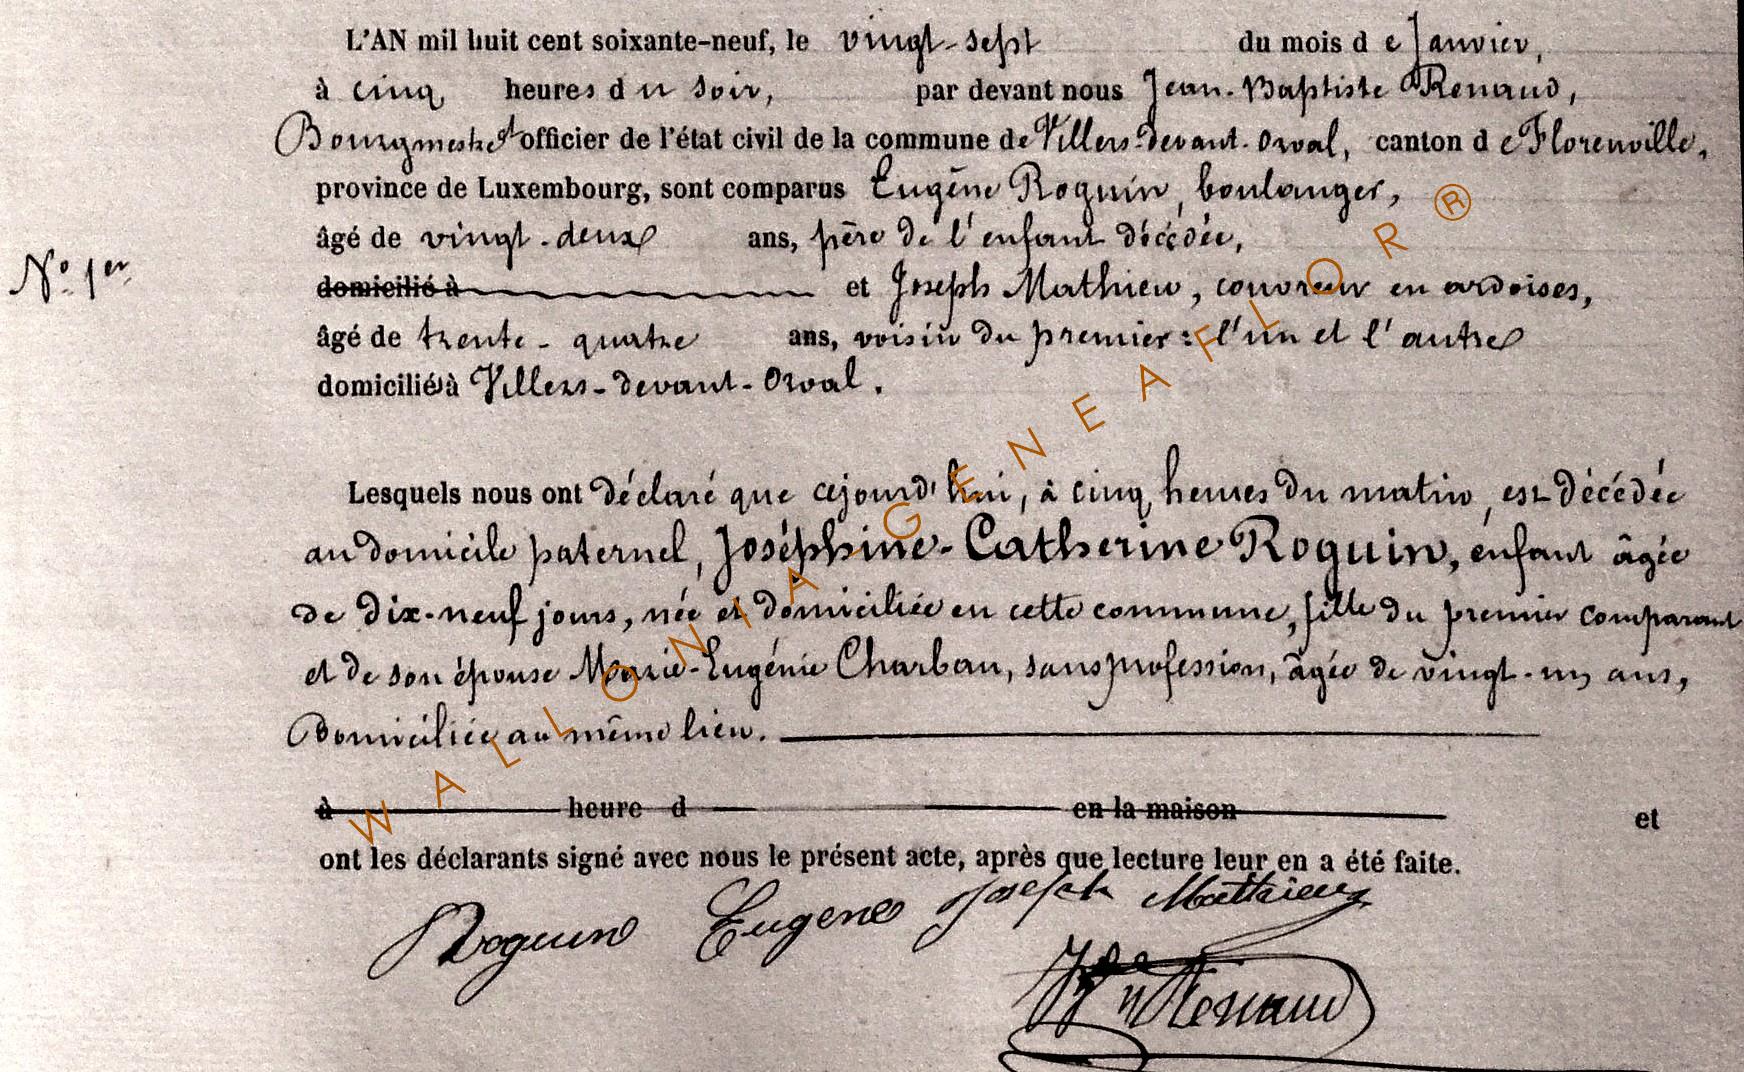 L'AN mil huit cent soixante-neuf, le vingt-sept du mois de Janvier,
à cinq heures du soir, par devant nous Jean-Baptiste Renaud,
Bourgmestre et officier de l'état civil de la commune de Villers-devant-Orval, canton de Florenville,
province de Luxembourg, sont comparus Eugène Roguin, boulanger,
âgé de vingt-deux ans, père de l'enfant décédée,
N° 1er
domicilié à et Joseph Mathieu, couvreur en ardoises,
âgé de trente-quatre ans, voisin du premier: l'un et l'autre
domiciliés à Villers-devant-Orval.
Lesquels nous ont déclaré que cejourd'hui, à cinq heures du matin, est décédée
au domicile paternel, Joséphine-Catherine Roguin, enfant âgée
de dix-neuf jours, née et domiciliée en cette commune, fille du premier comparant
et de son épouse Marie-Eugénie Charbau, sans profession, âgée de vingt-un ans,
Domiciliée au même lieu.
à heure d en la maison et
ont les déclarants signé avec nous le présent acte, après que lecture leur en a été faite.
Roguin Eugene Joseph Mathieu
Renaud
WALLONIA GENEAFLOR ®